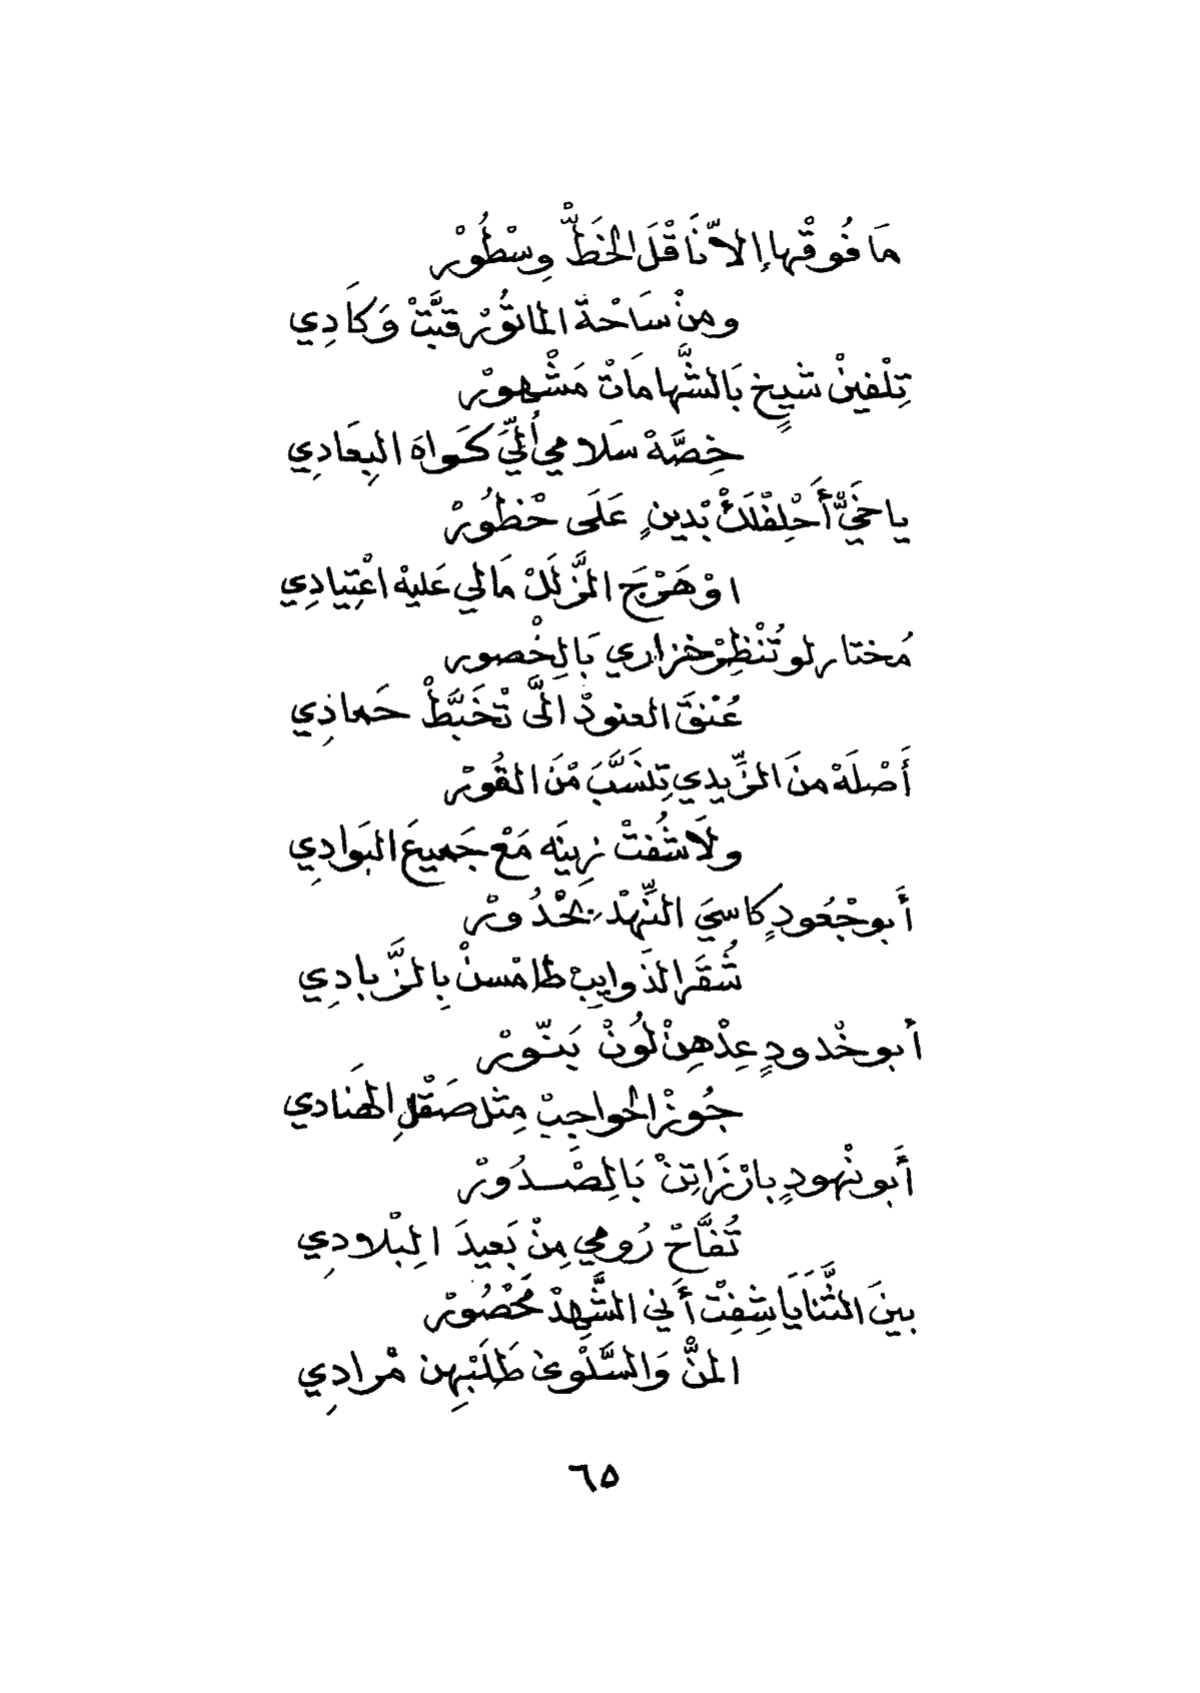 مَا فُوقْها إلاّ نَاقْلَ الخَطّْ وِسْطُورْ
ومِنْ سَاحْة الماتُورْ قبَّتْ وَكَادِي
تِلْفينْ شيٍخ بَالشَّهامَاتْ مَشْهورْ
خِصَّهْ سَلامي أُللِّيَ كَواهَ البِعَادِي
ياخَيّْ أَحْلِفْلَكْ بْدينٍ عَلَى حْظُورْ
اوْ هَرْجَ الزَّلَلْ مَالي عَليهْ اعْتِيادِي
مُختار لو تُنْظِرْ خزاري بَالِخْصور
عُنْقَ العنودْ الَّى تْخَبَّطْ حَماذِي
أَصْلَهْ منَ الزِّيدي تِنَسَّبَ مْنَ القُورْ
ولَا شُفتْ زِينَه مَعْ جَميعَ البَوادِي
أَبو جْعُودٍ كاسيَ النِّهْدْ بخْدُورْ
شُقَرَ الذَوايِبْ طامْسنْ بِالزَّبادِي
أبو خْدودٍ عِدْهِنْ لُونْ بَنّورْ
جُوزْ الحواجِبْ مِثل صَقْلِ الهَنَادي
أَبو نْهودٍ بارْزَاتِنْ بَالِصْدُورْ
تُفَّاحْ رُومي مِنْ بَعيدَ الِبْلادِي
بينَ الثَّنَايَا شِفِتْ أَني الشَّهِدْ مَحْصُورْ
المنّْ وَالسَّلْوىٰ طَلَبْهِن مْرادِي
٦٥